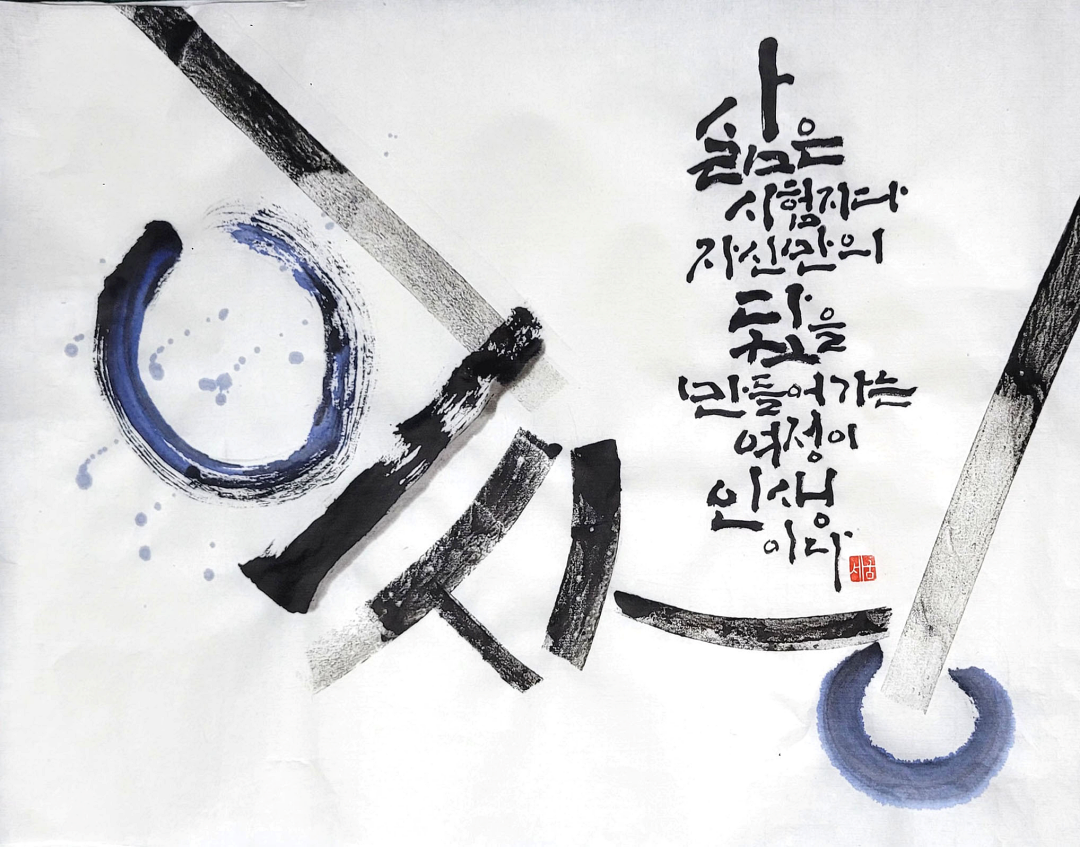 인생
삶은
시험지다
자신만의
답을
만들어가는
여정이
인생
이다